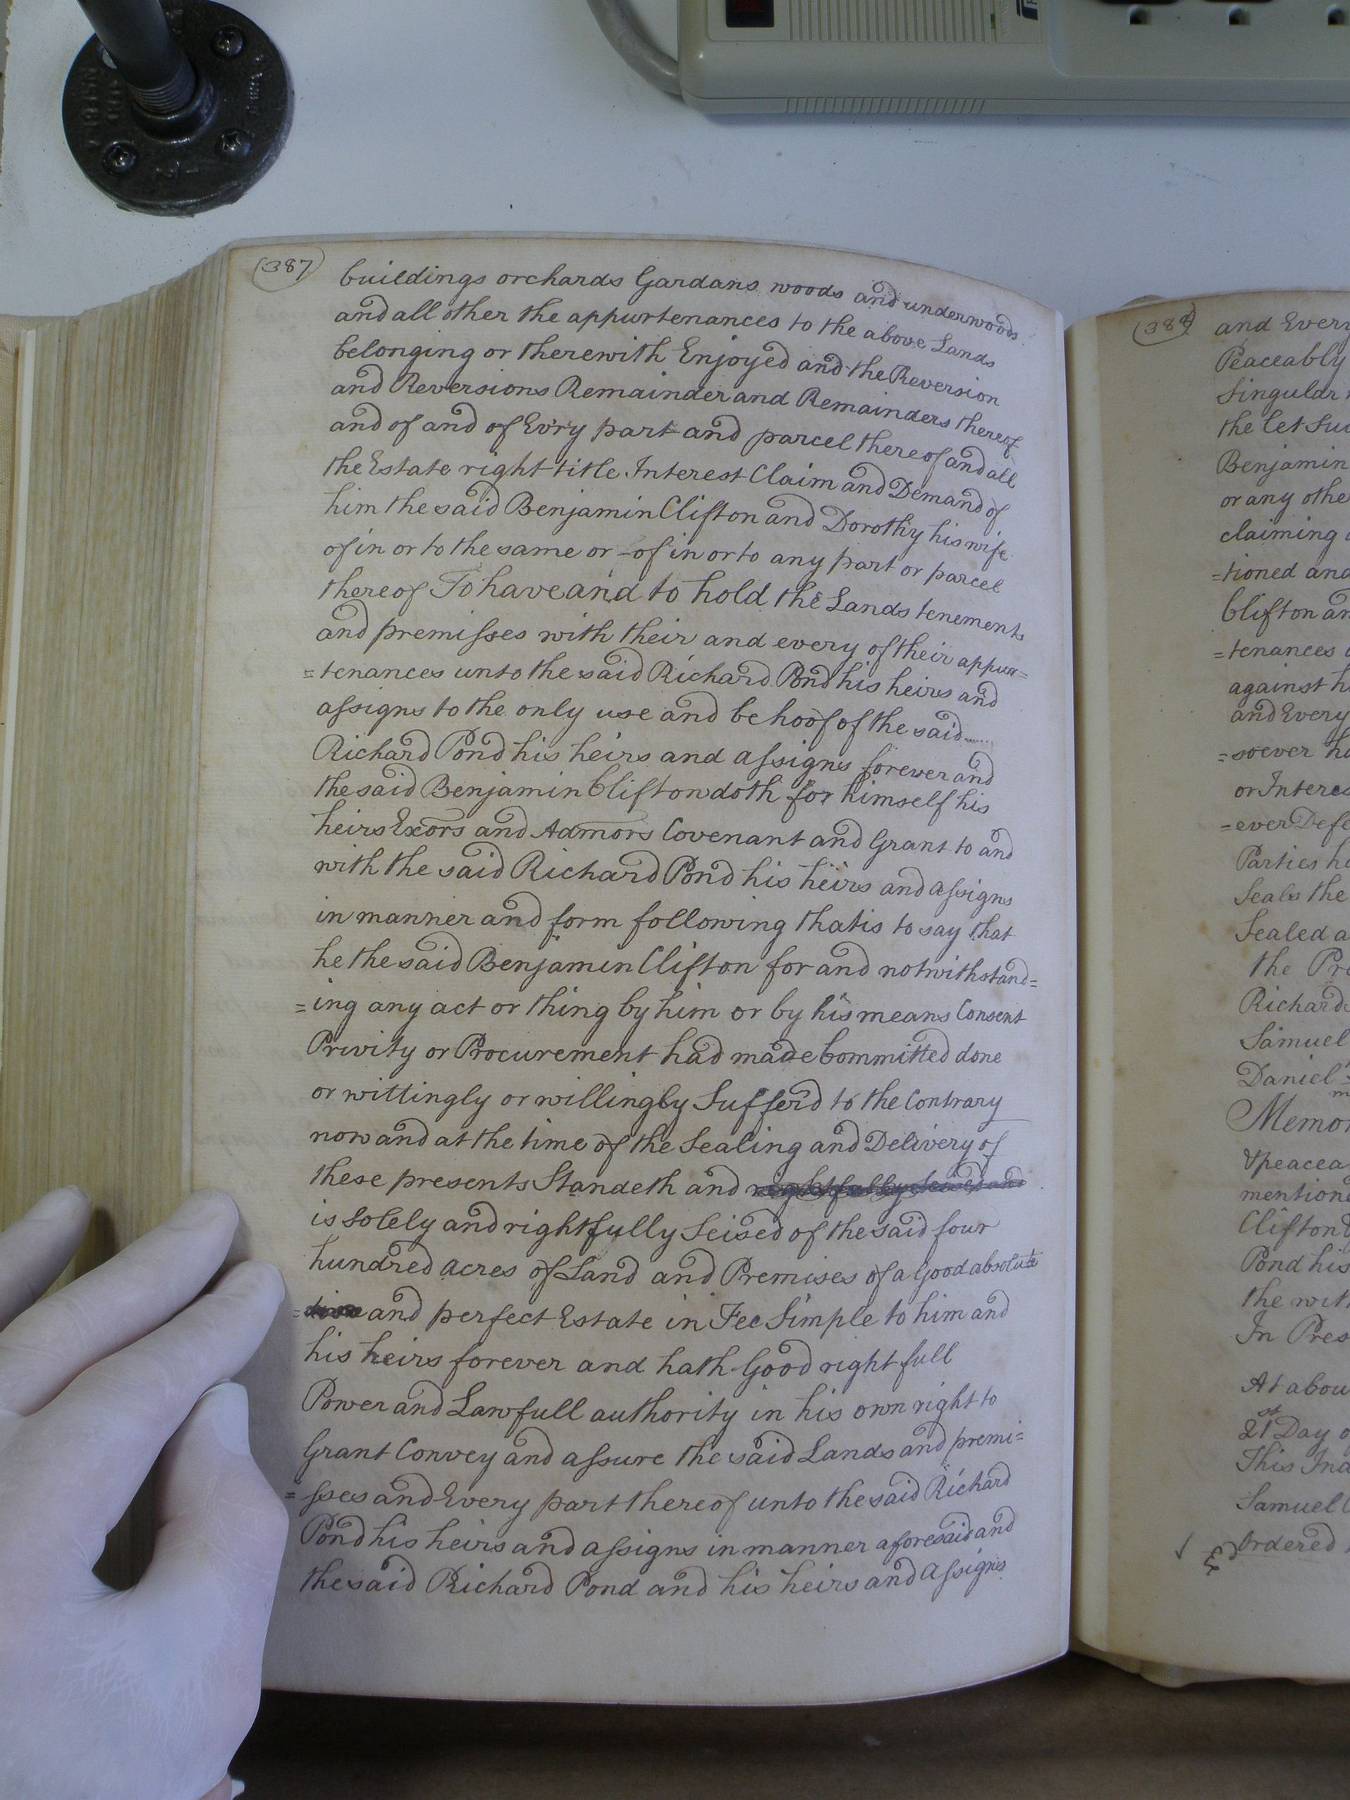 (387)
buildings orchards Gardans woods and underwoods
and all other the appurtenances to the above Lands
belonging or therewith Enjoyed and the Reversion
and Reversions Remainder and Remainders thereof
and of and of Ev'ry part and parcel thereof and all
the Estate right title Interest Claim and Demand of
him the said Benjamin Clifton and Dorothy his wife
of in or to the same or of in or to any part or parcel
thereof To have and to hold the Lands tenements
and premisses with their and every of their appur=
=tenances unto the said Richard Pond his heirs and
assigns to the only use and behoof of the said
Richard Pond his heirs and assigns forever and
the said Benjamin Clifton doth for himself his
heirs Exors and Admors Covenant and Grant to and
with the said Richard Pond his heirs and assigns
in manner and form following that is to say that
he the said Benjamin Clifton for and notwithstand=
=ing any act or thing by him or by his means Consent
Privity or Procurement had made Committed done
or wittingly or willingly Sufferd to the Contrary
now and at the time of the Sealing and Delivery of
these presents Standeth and rightfully Seised and
is Solely and rightfully Seised of the said four
hundred acres of Land and Premises of a Good absolute
and perfect Estate in Fee Simple to him and
his heirs forever and hath Good right full
Power and Lawfull authority in his own right to
Grant Convey and assure the said Lands and premi=
=sses and Every part thereof unto the said Richard
Pond his heirs and assigns in manner aforesaid and
the said Richard Pond and his heirs and Assigns
(388)
and Every
Peaceably
Singular
the Let Sui
Benjamin
or any othe
claiming
=tioned and
Clifton an
=tenances
against h
and Every
=soever ha
or Interes
=ever Defe
Parties h
Seals the
Sealed a
the Pre
Richard
Samuel
Daniel
Memor
&peacea
mentione
Clifton
Pond his
the wit
In Pres
At abou
21st Day o
This Ind
Samuel
Ordered